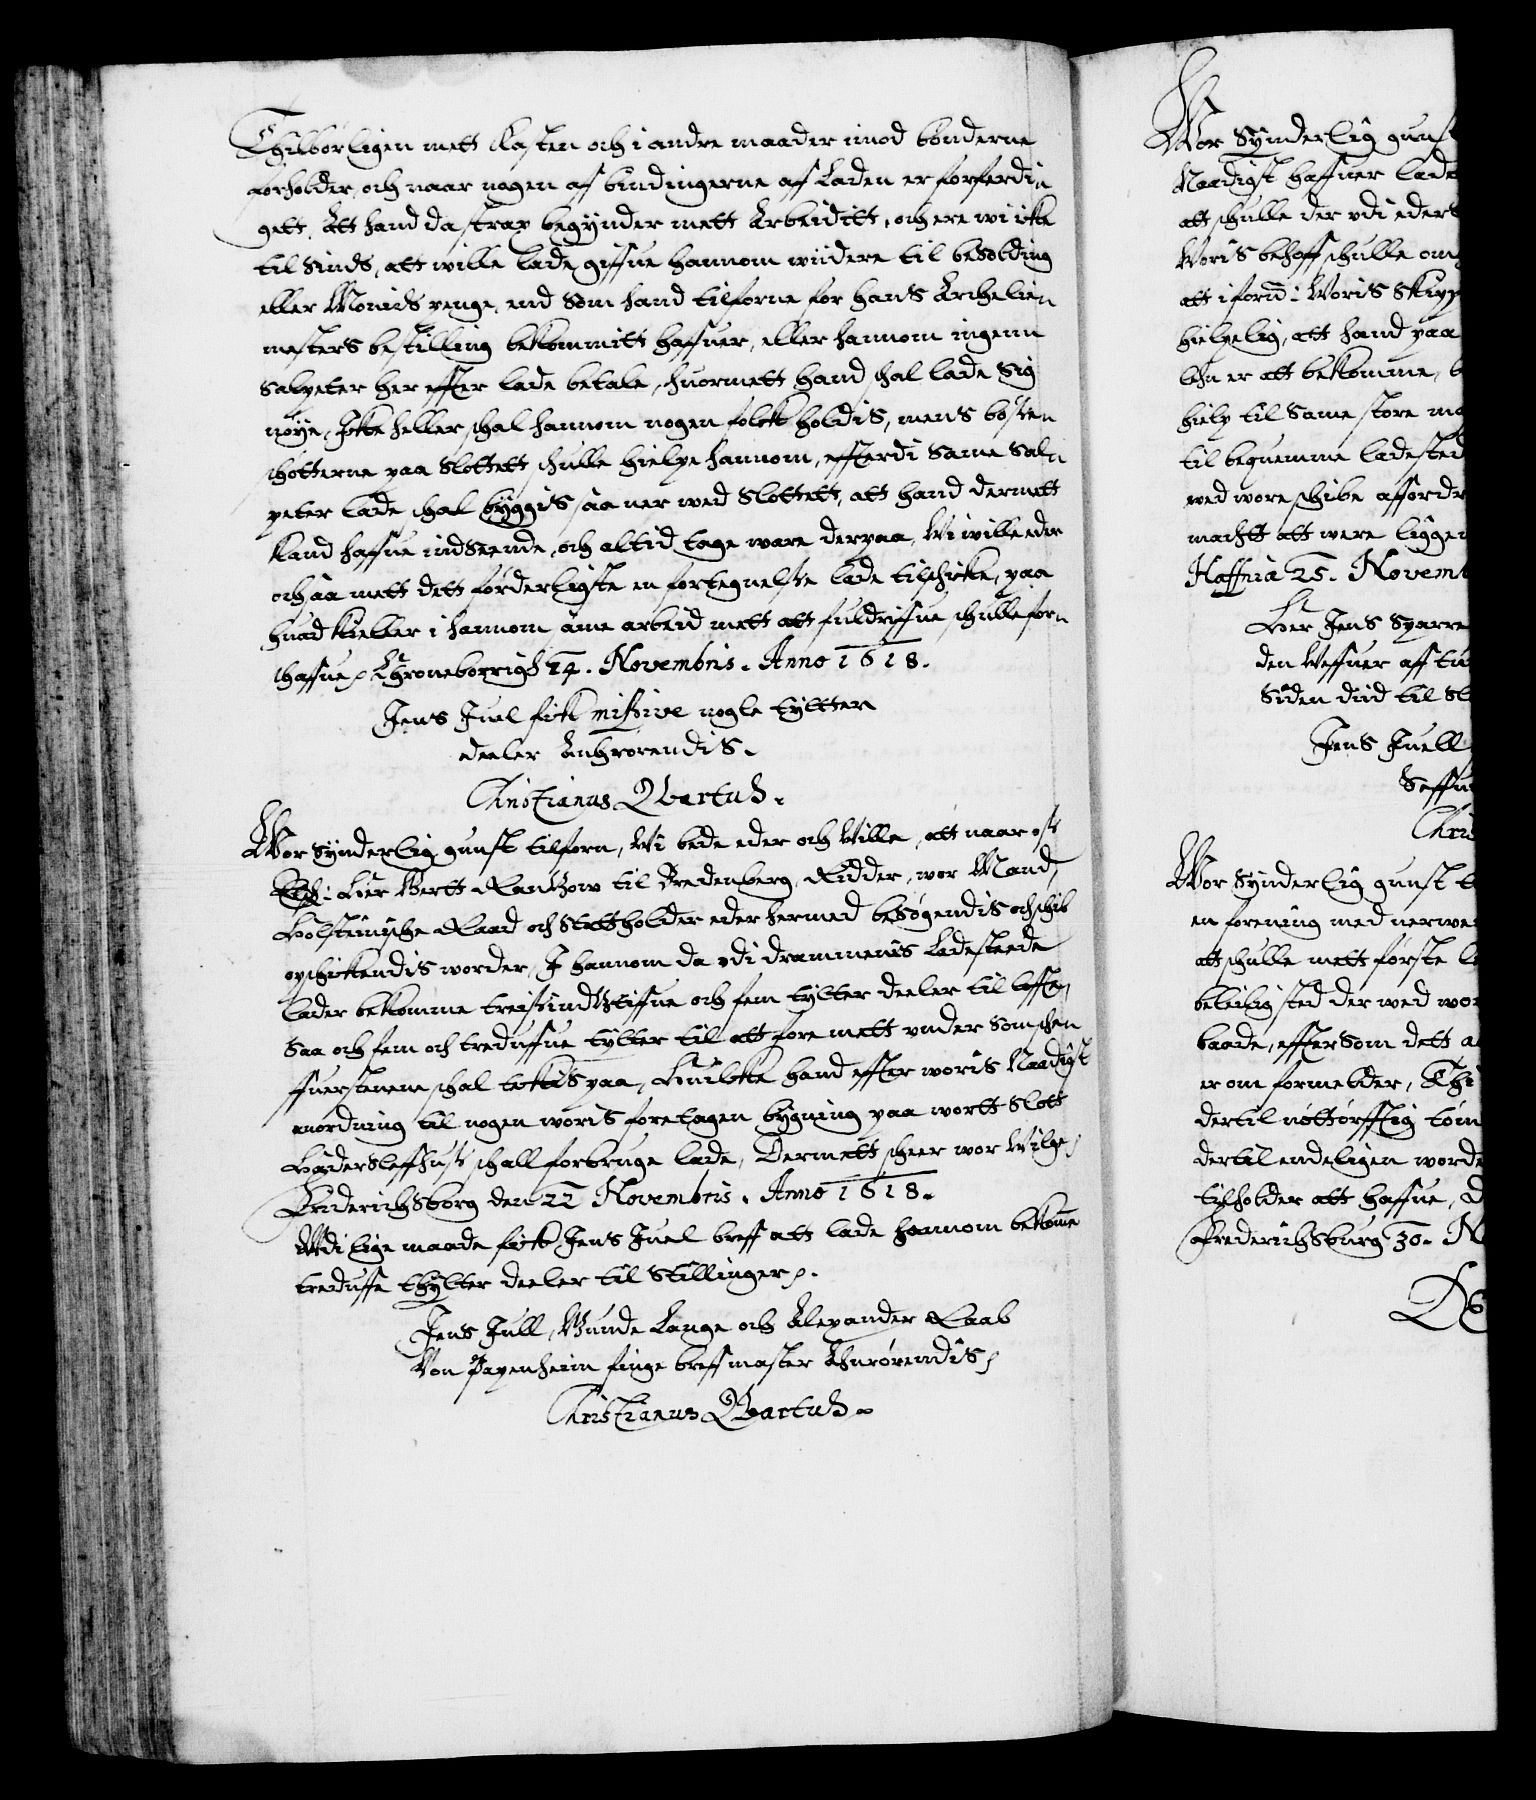 Thilbørligen mett Kasten och i andre maader imod bønderne
forholder, och naar nogen af bindingerne aff Laden er forferdi-
gett. Att hand da strax begynder mett Arbeiditt, och ere wi icke
til Sinds, att wille lade giffue hannom widere til besolding
eller Monids penge, end som hand tilforne for hans Archelie-
mesters bestilling bekommitt haffuer, eller hannom ingenn
Salpeter her effter lade betale, huormett hand schal lade sig
nøye, Icke heller schal hannom nogen folck holdis, mens bøsse-
schötterne paa Slottett schulle hielpe hannom, effterdi Same Sal-
peter lade schal byggis saa ner wed Slottett, att hand dermett
kand haffue indseende, och altid tage ware derpaa, Wi wille eder
och saa mett dett förderligste en fortegnelsse lade tilschicke, paa
huad Kieller i hannom same arbeid mett att fuldriffue schulle for-
schaffue Chroneborrigh 14. Novembris. Anno 1618.
Jens Juel fick missive nogle tyltter
deeler Anhrorendis.
Christianus Qvartus.
Wor Synderlig gunst tilforn, Wi bede eder och Wille, att naar oss
Elsk: Her Gertt Rantzow til Bredenberg, Ridder, wor Mand,
Holstenische Raad och Stattholder eder hermed besögendis och schib
opschickendis worder, I hannom da vdi drammenis Ladesteede
lader bekomme treisindstiffue och fem tylter deeler til loffte
Saa och fem och treduffue tylter til att fore mett vnder Som schen
ffuerstenene schal leckis paa, Huilcke hand effter woris Naadigst
anordning til nogen woris foretagen bygning paa wortt Slott
Haderslefhuss schall forbruge lade, Dermett scheer wor Wilge
Friderichsborg den 22 Novembris. Anno 1618.
Vdi lige maade fick Jens Juel breff att lade hannom bekomme
treduffe thylter deeler til Stillinger.
Jens Jull, Gunde Lange och Alexander Raab
Von Papenheim finge breff master Anrörendis
Christianus Qvartus.
Wor Synderlig gunst
Naadigst haffuer lade
att schulle der vdi eders
Woris behoff schulle om
att i forne Woris Skipp
hielpelig, att hand paa
lehn er att bekomme,
hielp til Same store ma
til beqvemme ladested
wed wore schibe affordr
machtt att were ligger
Haffnia 25. Novemb
Her Jens Sparre
den Weffuer aff tu
Siden did til Sl
Jens Juell
Seffu
Chris
Wor Synderlig gunst t
en forening med nerwe
att schulle mett förste
beleilig sted der wed wor
baade, effter Som dett a
er om formelder, Thi
dertil nöttörfftig töm
dertil endeligen worde
tilholder att haffue, D
Frederichsburg 30. N